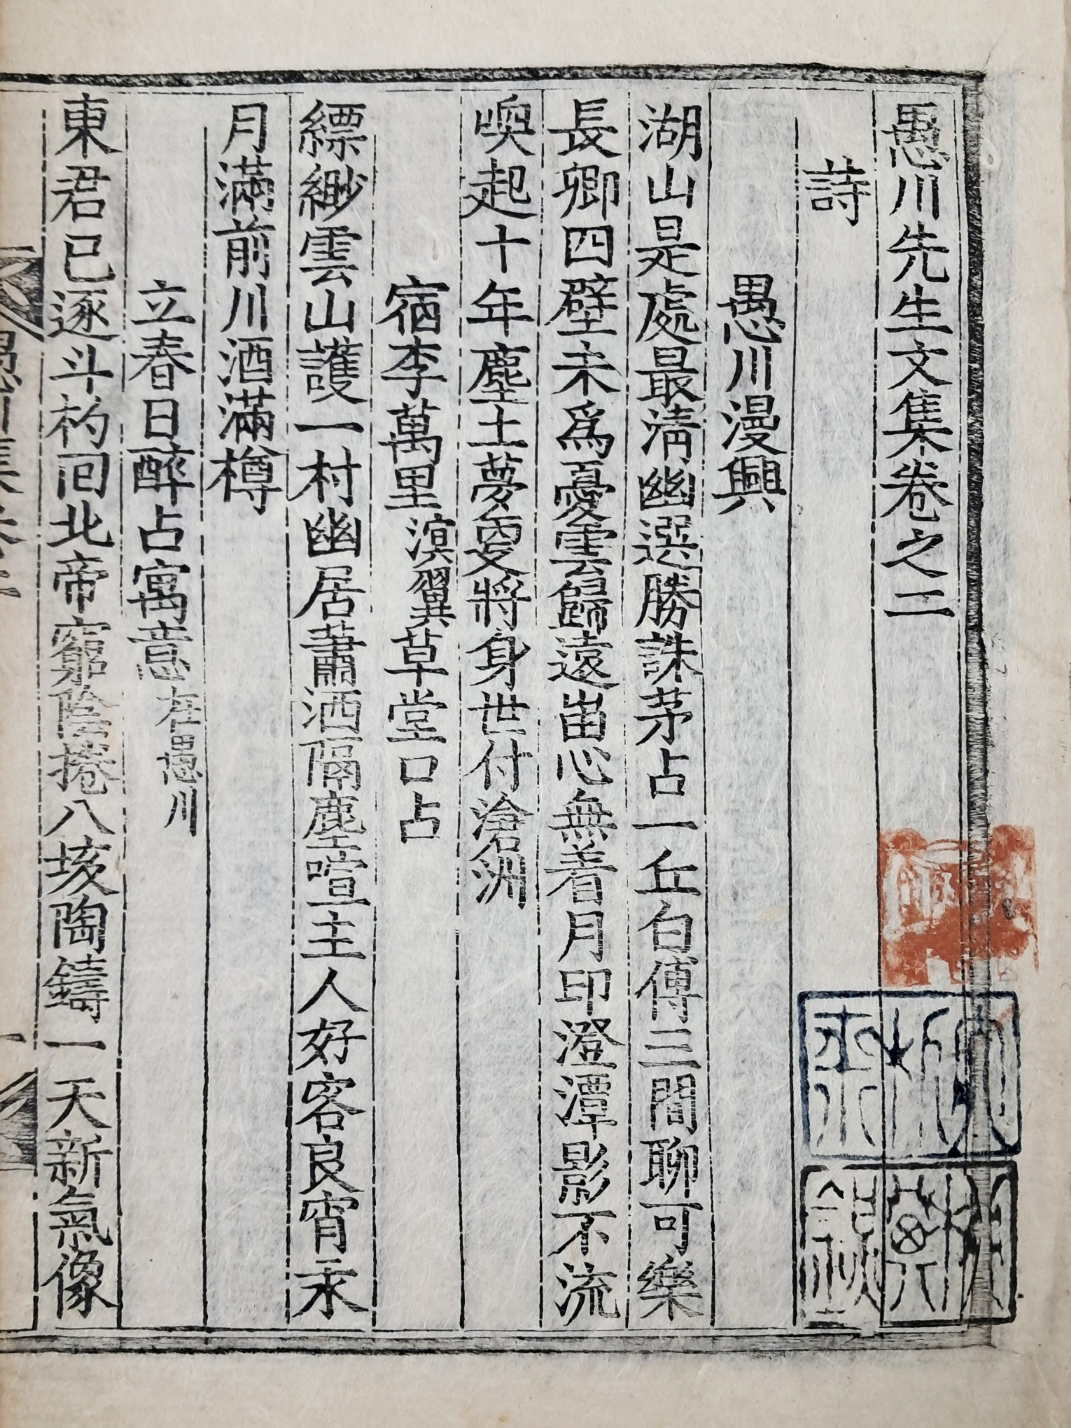 愚川先生文集卷之二
詩
愚川漫興
湖山是處最淸幽選勝誅茅占一丘白傅三間聊可樂
長卿四壁未爲憂雲歸遠峀心無着月印澄潭影不流
喚起十年塵土夢更將身世付滄洲
宿李萬里溟翼草堂口占
縹緲雲山護一村幽居蕭洒隔塵喧主人好客良宵永
月滿前川酒滿樽
立春日醉占寓意在愚川
東君已逐斗杓回北帝窮陰捲八垓陶鑄一天新氣像